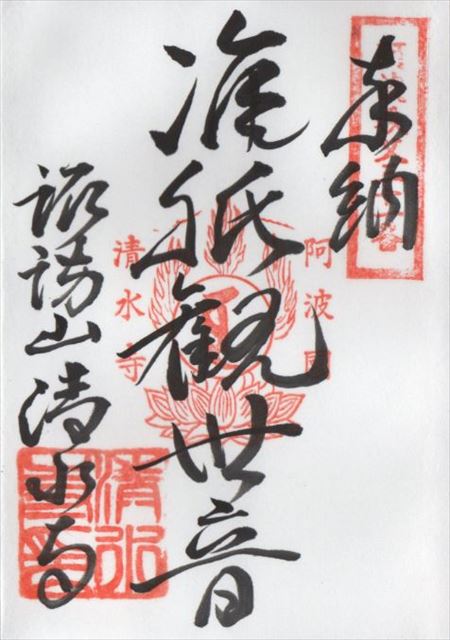 奉納
准胝観世音
諏訪山清水寺
阿波国
清水寺